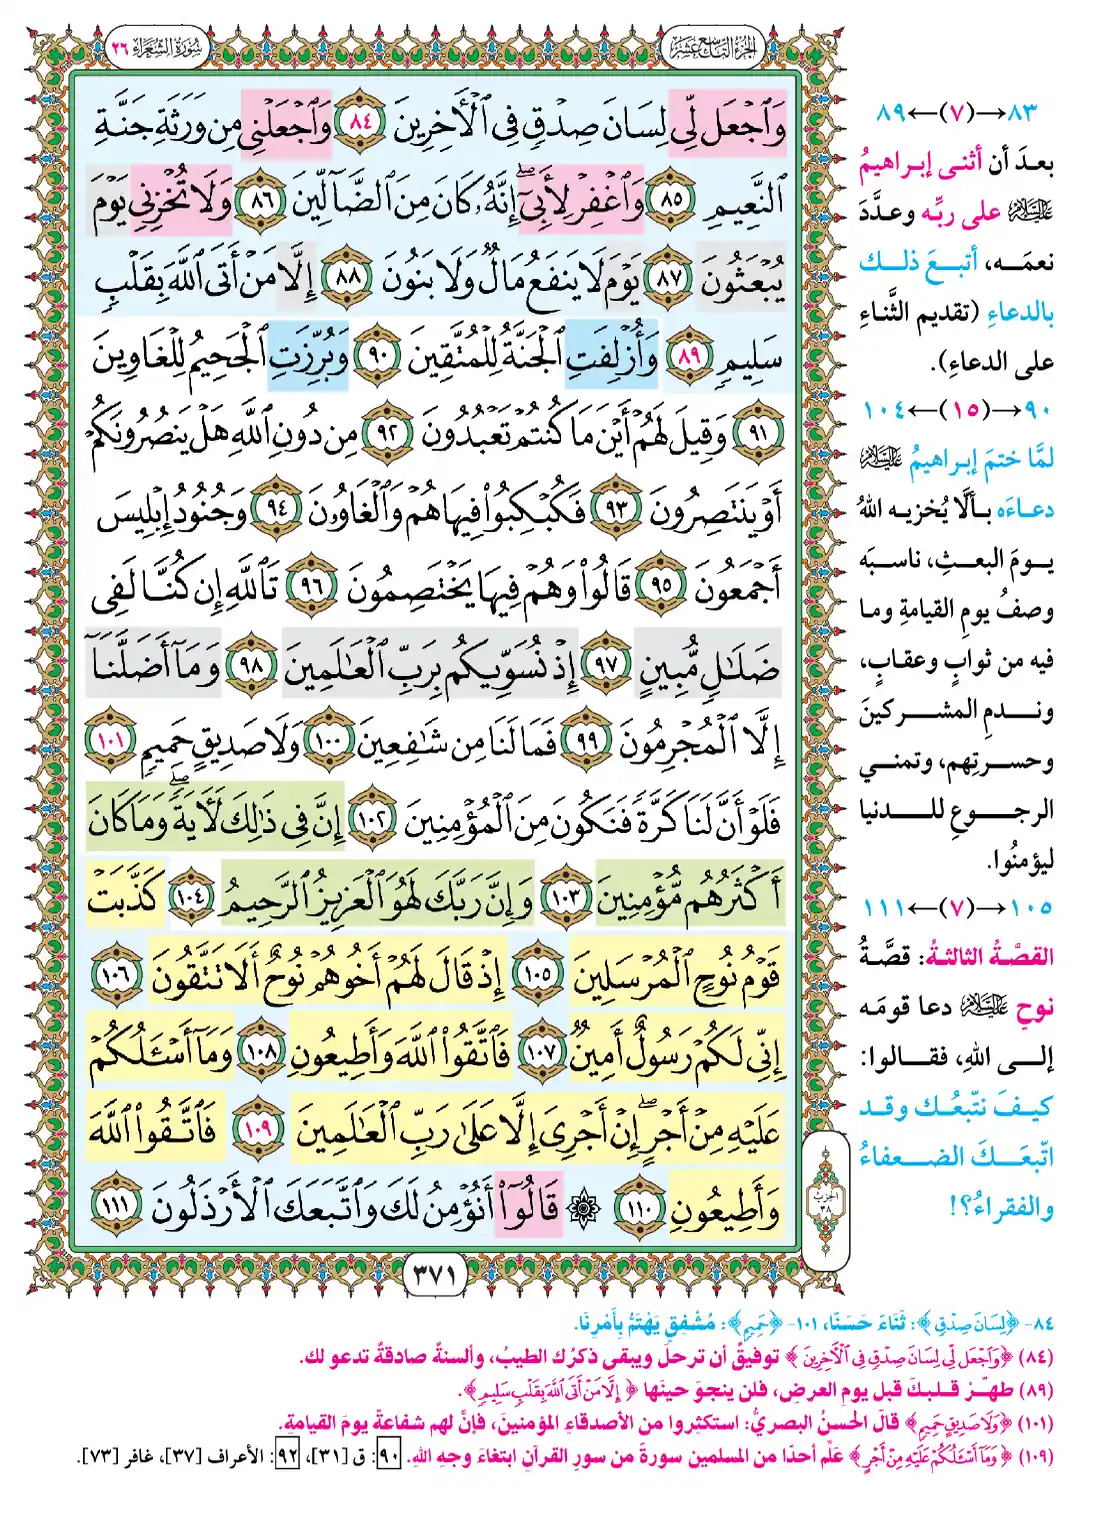 الجزء التاسع عشر
سورة الشعراء ٢٦
وَٱجۡعَل لِّي لِسَانَ صِدۡقٖ فِي ٱلۡأٓخِرِينَ ٨٤ وَٱجۡعَلۡنِي مِن وَرَثَةِ جَنَّةِ
ٱلنَّعِيمِ ٨٥ وَٱغۡفِرۡ لِأَبِيٓۖ إِنَّهُۥ كَانَ مِنَ ٱلضَّآلِّينَ ٨٦ وَلَا تُخۡزِنِي يَوۡمَ
يُبۡعَثُونَ ٨٧ يَوۡمَ لَا يَنفَعُ مَالٞ وَلَا بَنُونَ ٨٨ إِلَّا مَنۡ أَتَى ٱللَّهَ بِقَلۡبٖ
سَلِيمٖ ٨٩ وَأُزۡلِفَتِ ٱلۡجَنَّةُ لِلۡمُتَّقِينَ ٩٠ وَبُرِّزَتِ ٱلۡجَحِيمُ لِلۡغَاوِينَ
٩١ وَقِيلَ لَهُمۡ أَيۡنَ مَا كُنتُمۡ تَعۡبُدُونَ ٩٢ مِن دُونِ ٱللَّهِ هَلۡ يَنصُرُونَكُمۡ
أَوۡ يَنتَصِرُونَ ٩٣ فَكُبۡكِبُواْ فِيهَا هُمۡ وَٱلۡغَاوُۥنَ ٩٤ وَجُنُودُ إِبۡلِيسَ
أَجۡمَعُونَ ٩٥ قَالُواْ وَهُمۡ فِيهَا يَخۡتَصِمُونَ ٩٦ تَٱللَّهِ إِن كُنَّا لَفِي
ضَلَٰلٖ مُّبِينٍ ٩٧ إِذۡ نُسَوِّيكُم بِرَبِّ ٱلۡعَٰلَمِينَ ٩٨ وَمَآ أَضَلَّنَآ
إِلَّا ٱلۡمُجۡرِمُونَ ٩٩ فَمَا لَنَا مِن شَٰفِعِينَ ١٠٠ وَلَا صَدِيقٍ حَمِيمٖ ١٠١
فَلَوۡ أَنَّ لَنَا كَرَّةٗ فَنَكُونَ مِنَ ٱلۡمُؤۡمِنِينَ ١٠٢ إِنَّ فِي ذَٰلِكَ لَأٓيَةٗۖ وَمَا كَانَ
أَكۡثَرُهُم مُّؤۡمِنِينَ ١٠٣ وَإِنَّ رَبَّكَ لَهُوَ ٱلۡعَزِيزُ ٱلرَّحِيمُ ١٠٤ كَذَّبَتۡ
قَوۡمُ نُوحٍ ٱلۡمُرۡسَلِينَ ١٠٥ إِذۡ قَالَ لَهُمۡ أَخُوهُمۡ نُوحٌ أَلَا تَتَّقُونَ ١٠٦
إِنِّي لَكُمۡ رَسُولٌ أَمِينٞ ١٠٧ فَٱتَّقُواْ ٱللَّهَ وَأَطِيعُونِ ١٠٨ وَمَآ أَسۡـَٔلُكُمۡ
عَلَيۡهِ مِنۡ أَجۡرٍۖ إِنۡ أَجۡرِيَ إِلَّا عَلَىٰ رَبِّ ٱلۡعَٰلَمِينَ ١٠٩ فَٱتَّقُواْ ٱللَّهَ
وَأَطِيعُونِ ١١٠ ۞ قَالُوٓاْ أَنُؤۡمِنُ لَكَ وَٱتَّبَعَكَ ٱلۡأَرۡذَلُونَ ١١١
٣٧١
الحزب
٣٨
٨٣→(٧)←٨٩
بعدَ أن أثنى إبراهيمُ
عليه السلام على ربِّه وعدَّدَ
نعمَه، أتبعَ ذلك
بالدعاءِ (تقديم الثَّناءِ
على الدعاءِ).
٩٠→(١٥)←١٠٤
لمَّا ختمَ إبراهيمُ عليه السلام
دعاءَه بألَّا يُخزيه اللهُ
يومَ البعثِ، ناسبَه
وصفُ يومِ القيامةِ وما
فيه من ثوابٍ وعقابٍ،
وندمِ المشركينَ
وحسرتِهم، وتمني
الرجوعِ للدنيا
ليؤمنُوا.
١٠٥→(٧)←١١١
القصَّةُ الثالثةُ: قصَّةُ
نوحٍ عليه السلام دعا قومَه
إلى اللهِ، فقالوا:
كيفَ نتَّبعُك وقد
اتّبعَكَ الضعفاءُ
والفقراءُ؟!
٨٤- ﴿لِسَانَ صِدۡقٖ﴾: ثَنَاءً حَسَنًا، ١٠١- ﴿حَمِيمٖ﴾: مُشْفِقٍ يَهْتَمُّ بِأَمْرِنَا.
(٨٤) ﴿وَٱجۡعَل لِّي لِسَانَ صِدۡقٖ فِي ٱلۡأٓخِرِينَ﴾ توفيقٌ أن ترحلَ ويبقى ذكرُك الطيبُ، وألسنةٌ صادقةٌ تدعو لك.
(٨٩) طهِّرْ قلبكَ قبل يومِ العرضِ، فلن ينجوَ حينَها ﴿إِلَّا مَنۡ أَتَى ٱللَّهَ بِقَلۡبٖ سَلِيمٖ﴾.
(١٠١) ﴿وَلَا صَدِيقٍ حَمِيمٖ﴾ قالَ الحسنُ البصريُّ: استكثِروا من الأصدقاءِ المؤمنينَ، فإنَّ لهم شفاعةً يومَ القيامةِ.
(١٠٩) ﴿وَمَآ أَسۡـَٔلُكُمۡ عَلَيۡهِ مِنۡ أَجۡرٍ﴾ علِّم أحدًا من المسلمين سورةً من سورِ القرآنِ ابتغاءَ وجهِ اللهِ. ٩٠: ق [٣١]، ٩٢: الأعراف [٣٧]، غافر [٧٣].